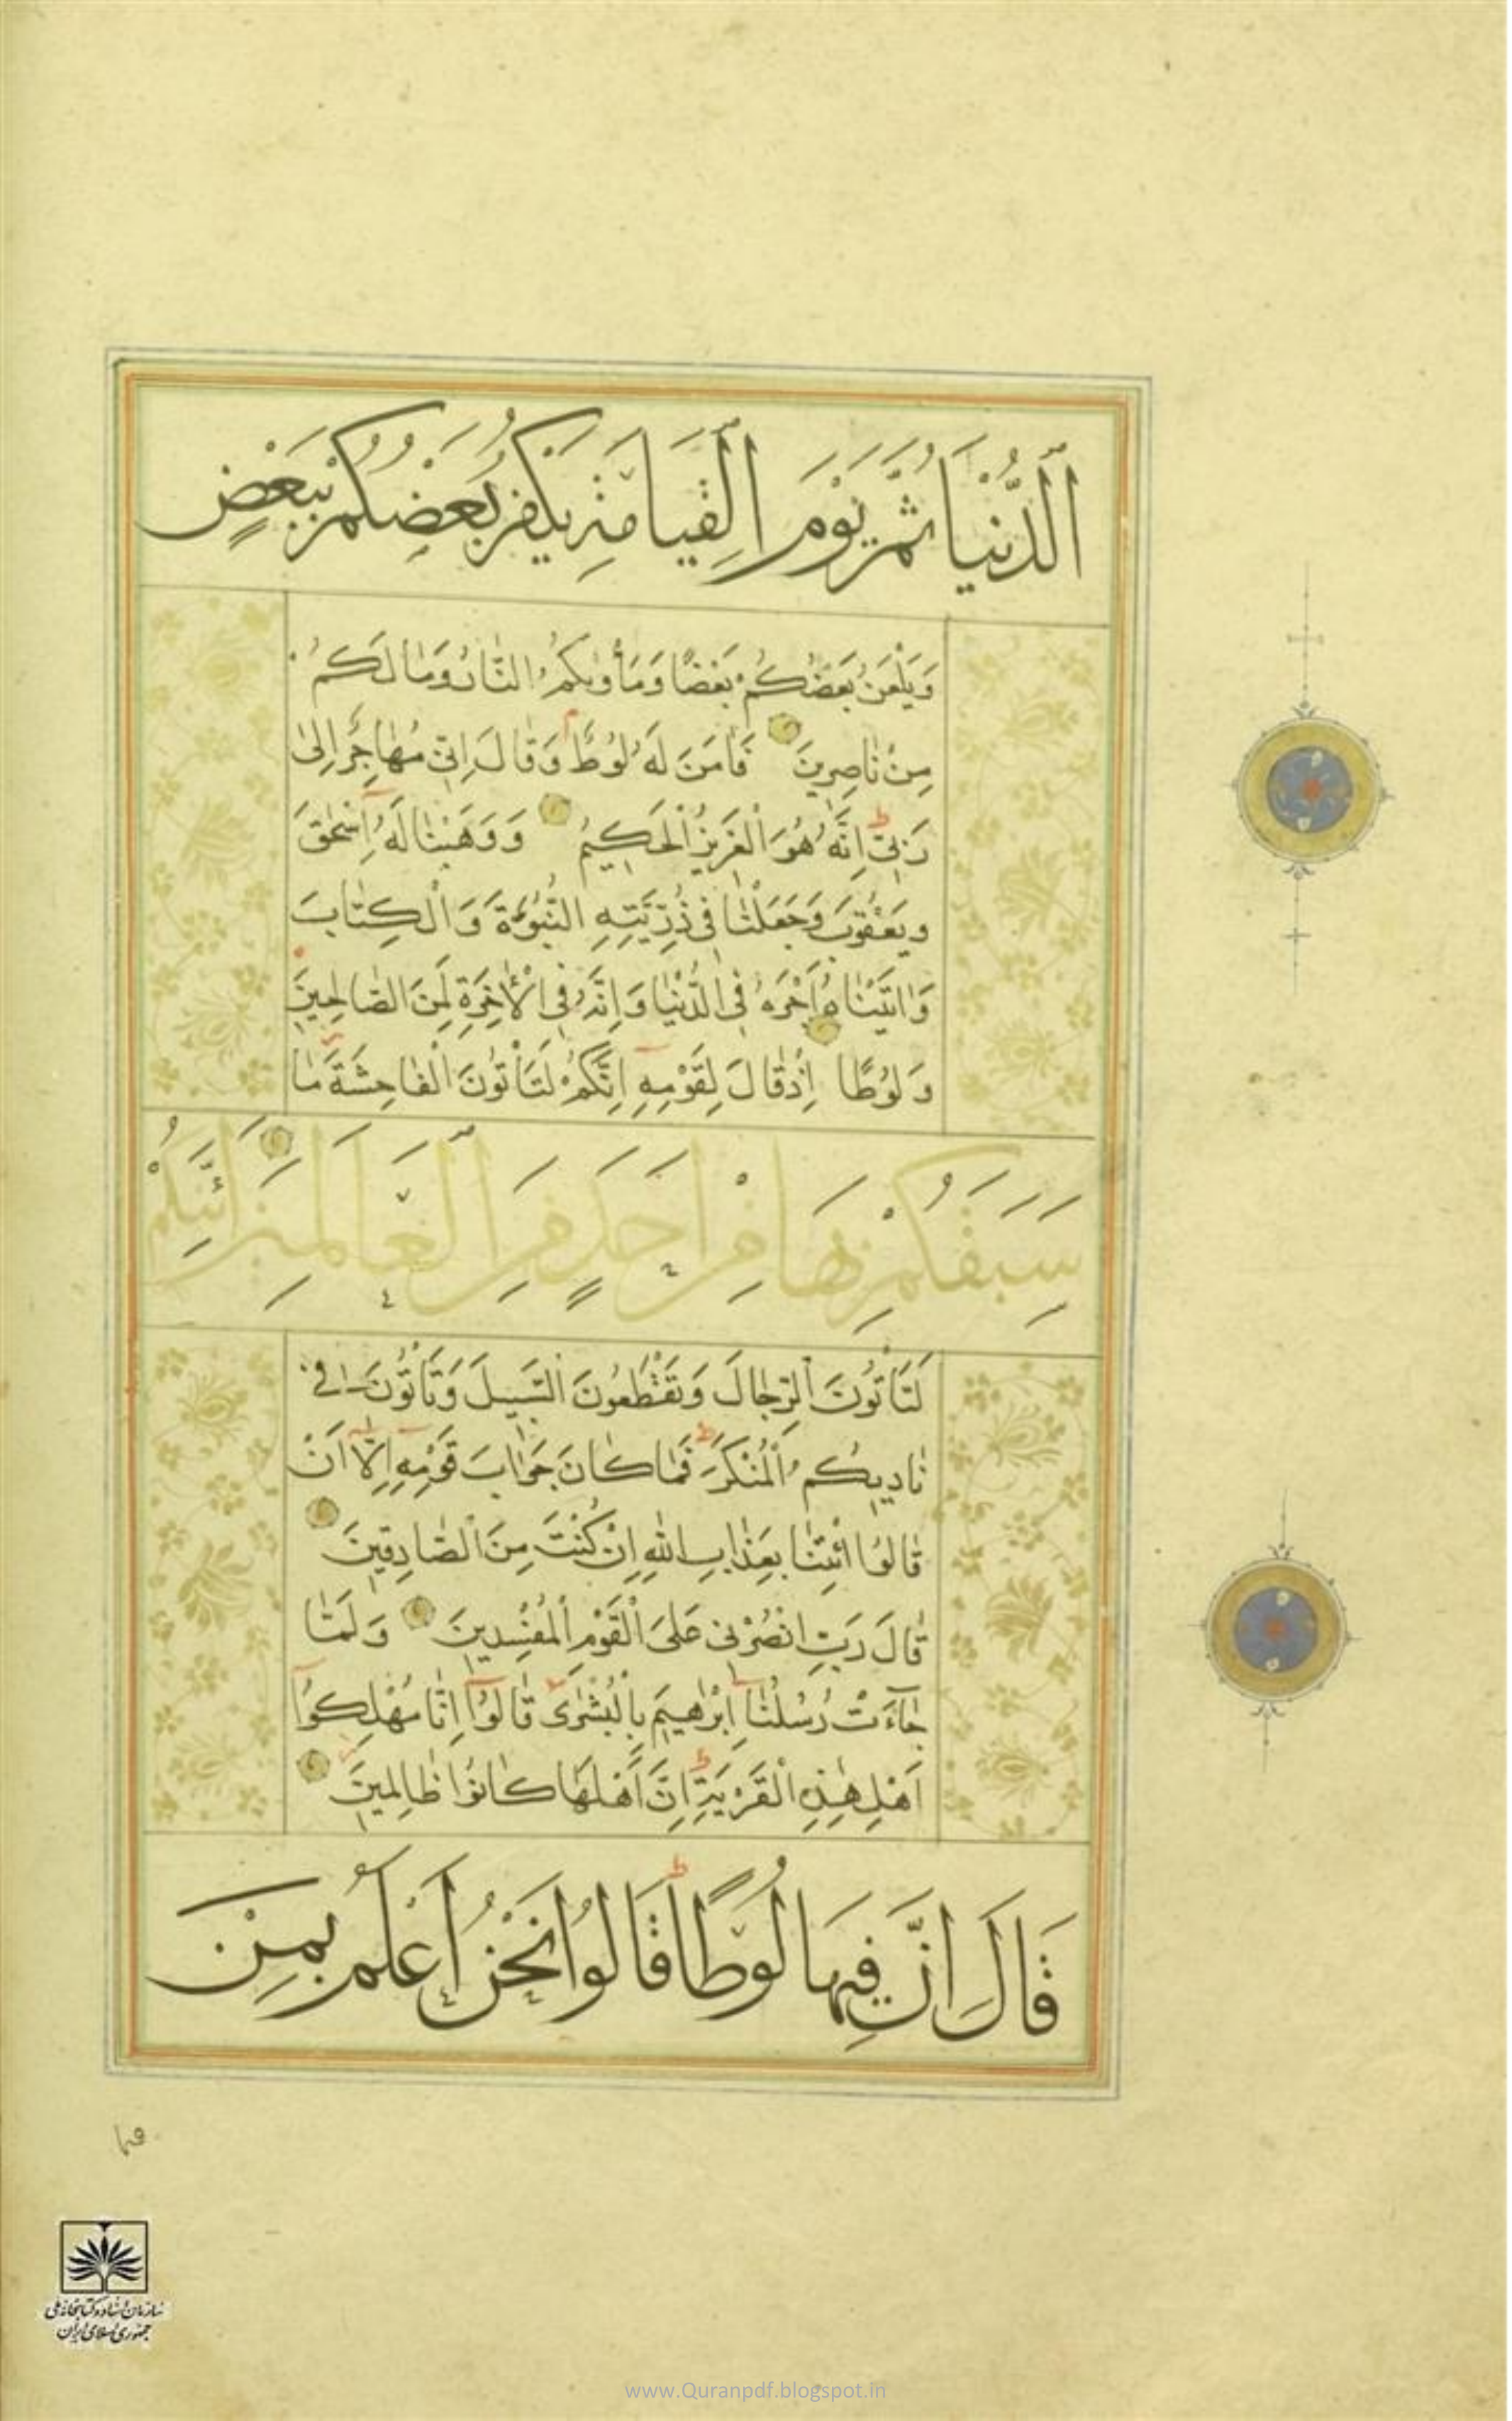 اَلدُّنْيَا ثُمَّ يَوْمَ الْقِيَامَةِ يَكْفُرُ بَعْضُكُمْ بِبَعْضٍ
وَيَلْعَنُ بَعْضُكُمْ بَعْضًا وَمَأْوٰىكُمُ النَّارُ وَمَا لَكُمْ
مِنْ نَاصِرِينَ فَاٰمَنَ لَهُ لُوطٌ وَقَالَ اِنّى مُهَاجِرٌ اِلىٰ
رَبّى اِنَّهُ هُوَ الْعَزِيزُ الْحَكِيمُ وَوَهَبْنَا لَهُ اِسْحٰقَ
وَيَعْقُوبَ وَجَعَلْنَا فِى ذُرِّيَّتِهِ النُّبُوَّةَ وَالْكِتَابَ
وَاٰتَيْنَاهُ اَجْرَهُ فِى الدُّنْيَا وَاِنَّهُ فِى الْاٰخِرَةِ لَمِنَ الصَّالِحِينَ
وَلُوطًا اِذْ قَالَ لِقَوْمِهِ اِنَّكُمْ لَتَأْتُونَ الْفَاحِشَةَ مَا
سَبَقَكُمْ بِهَا مِنْ اَحَدٍ مِنَ الْعَالَمِينَ اَئِنَّكُمْ
لَتَأْتُونَ الرِّجَالَ وَتَقْطَعُونَ السَّبِيلَ وَتَأْتُونَ فِى
نَادِيكُمُ الْمُنْكَرَ فَمَا كَانَ جَوَابَ قَوْمِهِ اِلَّا اَنْ
قَالُوا ائْتِنَا بِعَذَابِ اللهِ اِنْ كُنْتَ مِنَ الصَّادِقِينَ
قَالَ رَبِّ انْصُرْنِى عَلَى الْقَوْمِ الْمُفْسِدِينَ وَلَمَّا
جَاۤءَتْ رُسُلُنَا اِبْرٰهِيمَ بِالْبُشْرٰى قَالُوا اِنَّا مُهْلِكُوا
اَهْلِ هٰذِهِ الْقَرْيَةِ اِنَّ اَهْلَهَا كَانُوا ظَالِمِينَ
قَالَ اِنَّ فِيهَا لُوطًا قَالُوا نَحْنُ اَعْلَمُ بِمَنْ
سازمان اسناد و کتابخانه ملی
جمهوری اسلامی ایران
www.Quranpdf.blogspot.in